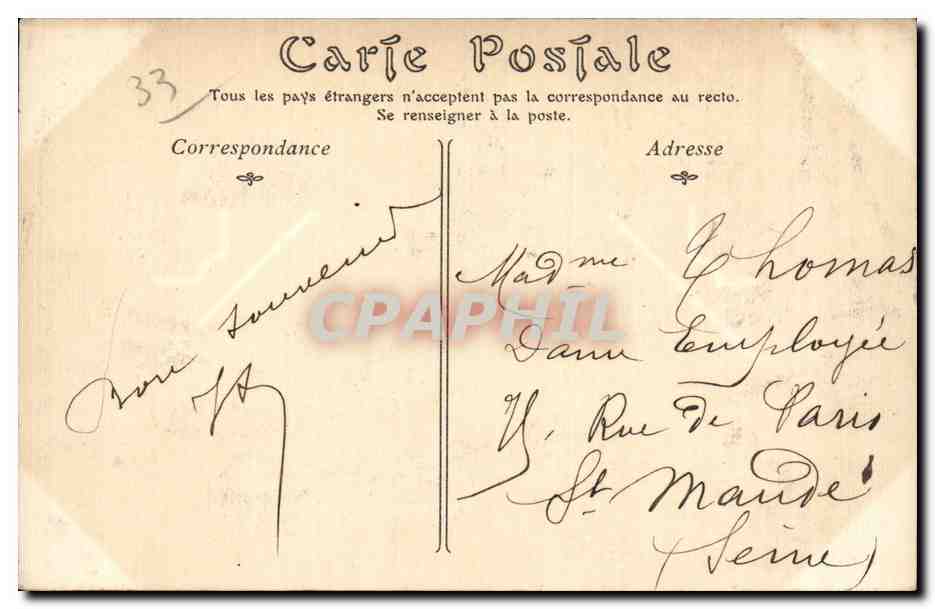 Carte Postale
33
Tous les pays étrangers n'acceptent pas la correspondance au recto.
Se renseigner à la poste.
Correspondance
Bon souvenir
Adresse
Madme Thomas
Dame Employée
Rue de Paris
St Mandé
(Seine)
CPAPHIL